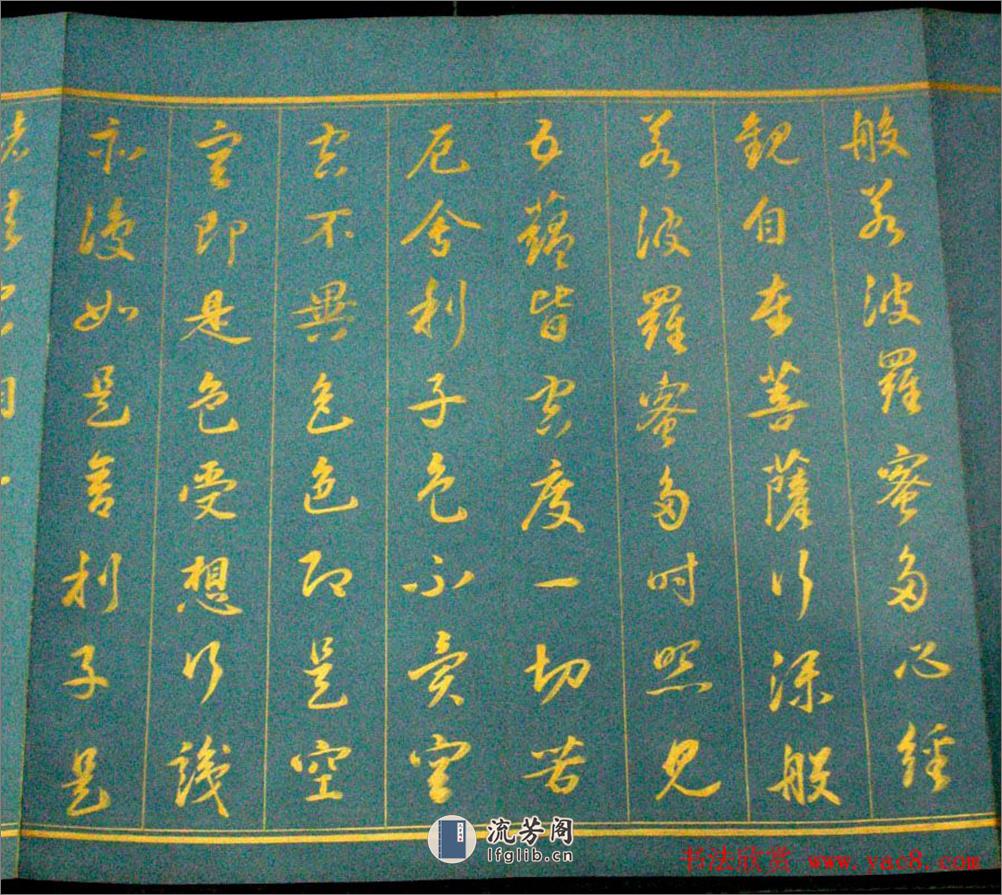 般若波羅蜜多心經
觀自在菩薩行深般
若波羅蜜多時照見
五蘊皆空度一切苦
厄舍利子色不異空
空不異色色即是空
空即是色受想行識
亦復如是舍利子是
流芳阁
lfglib.cn
书法欣赏 www.yac8.com